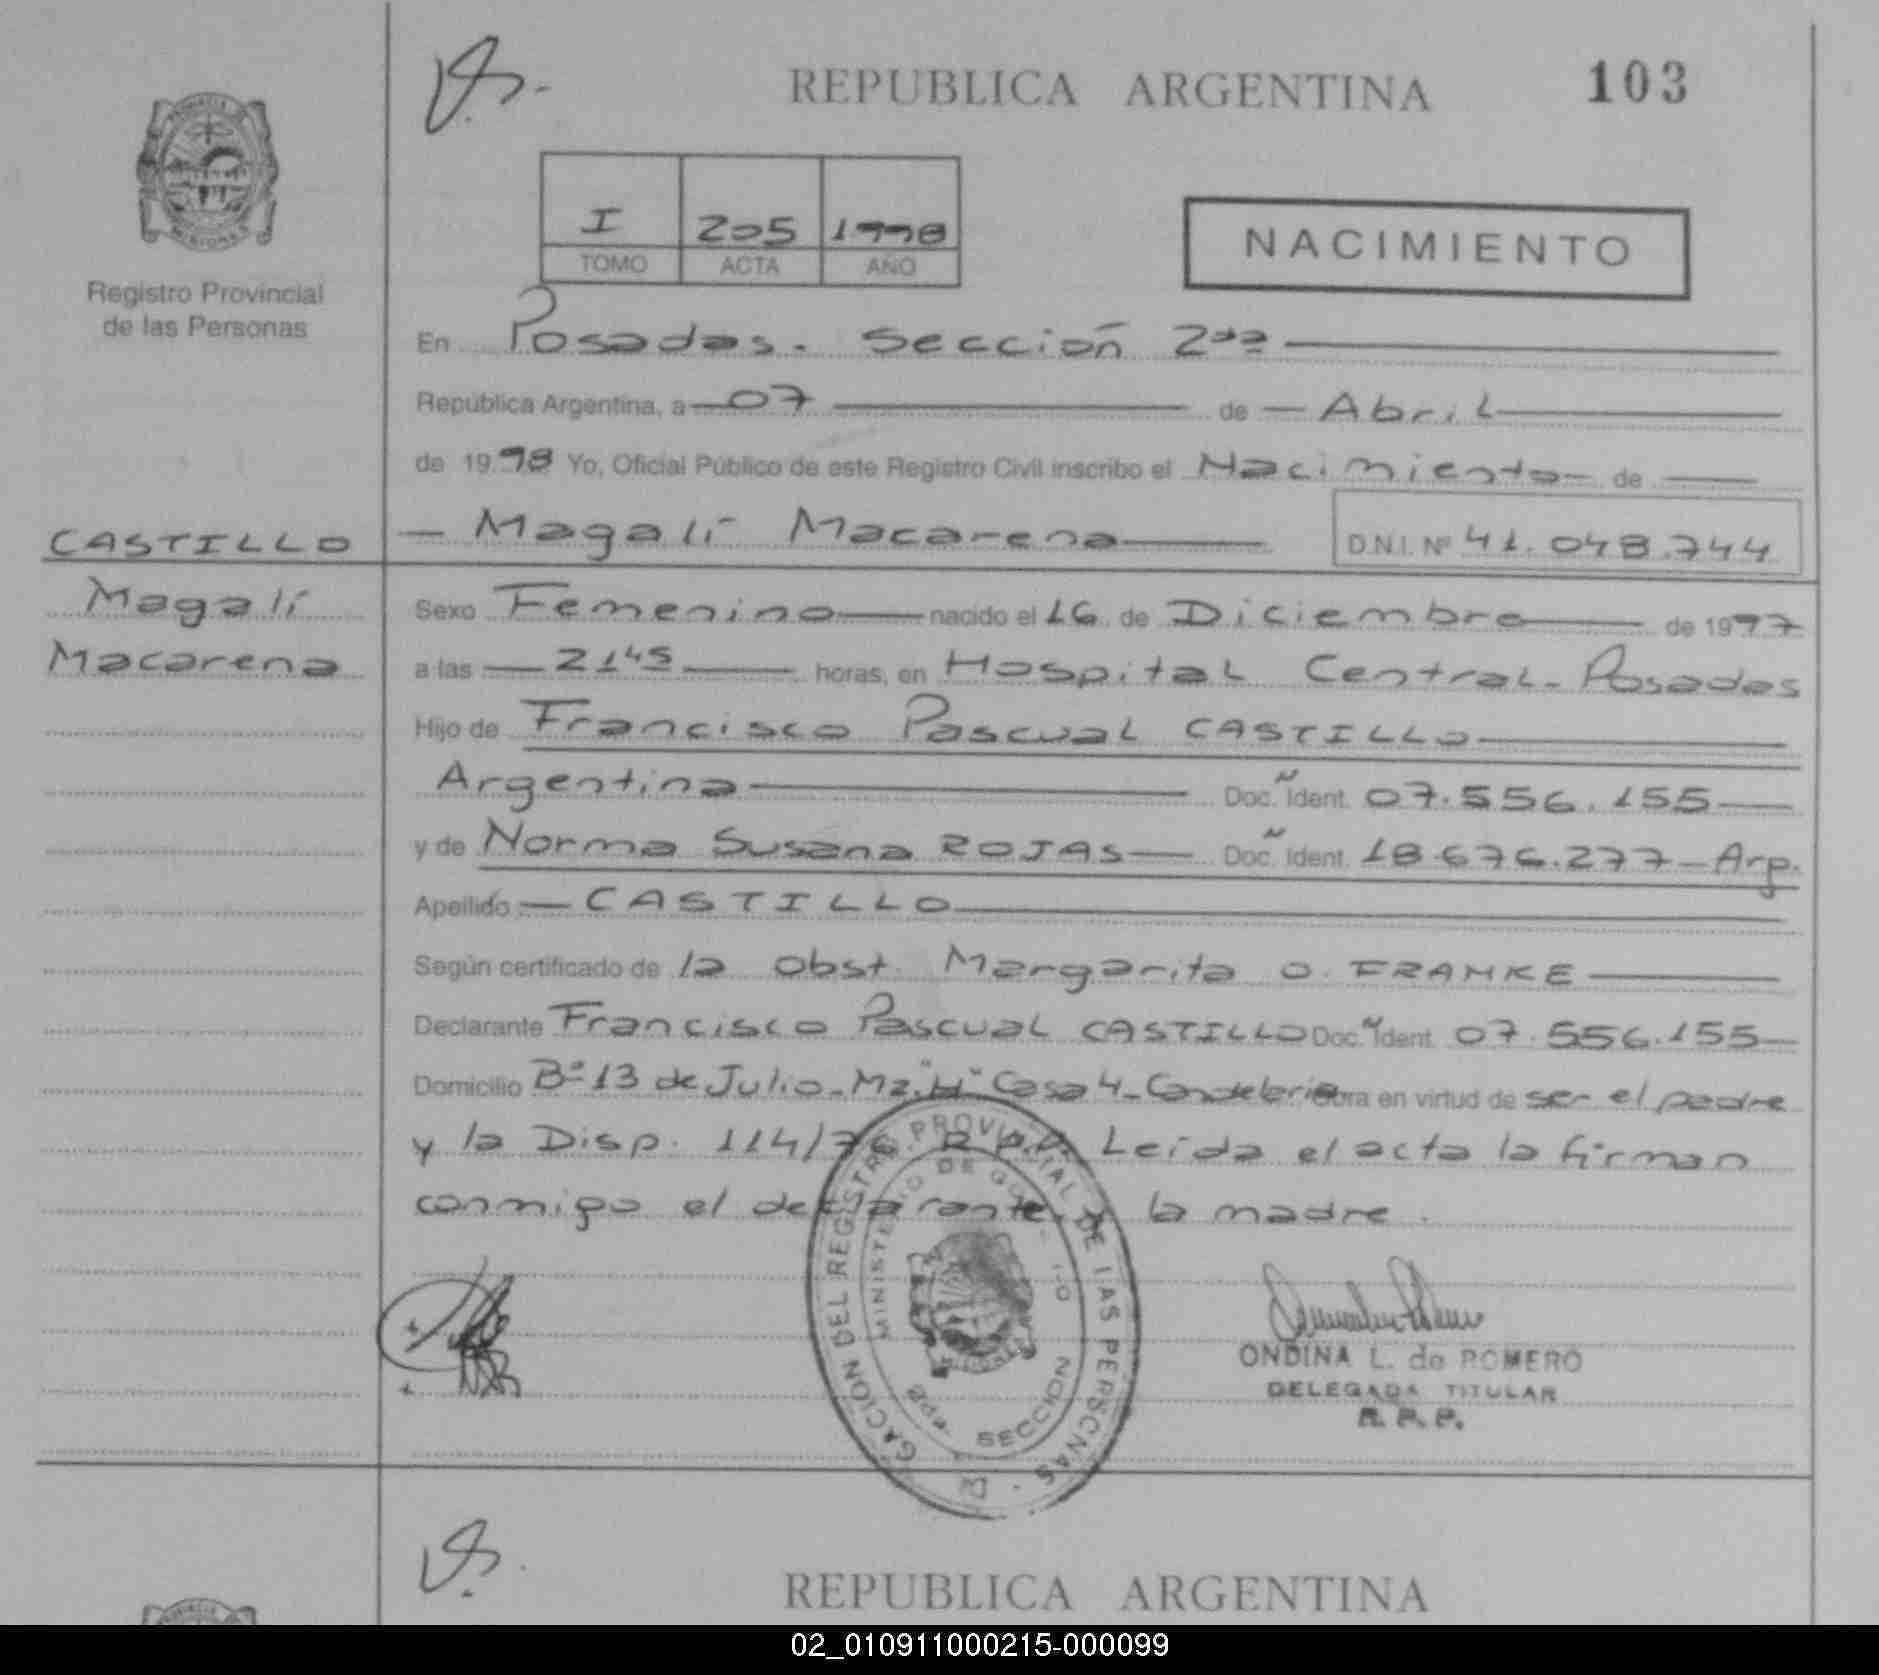 REPUBLICA ARGENTINA
103
PROVINCIA
MISIONES
Registro Provincial
de las Personas
I 205 1998
TOMO ACTA AÑO
NACIMIENTO
En Posadas. Sección 2da
República Argentina, a 07 de Abril
de 1998 Yo, Oficial Público de este Registro Civil inscribo el Nacimiento de
CASTILLO
Magalí Macarena D.N.I. Nº 41.048.744
Magalí
Macarena
Sexo Femenino nacido el 16 de Diciembre de 1997
a las 21 45 horas, en Hospital Central - Posadas
Hijo de Francisco Pascual CASTILLO
Argentina Doc. Ident. 07.556.155
y de Norma Susana ROJAS Doc. Ident. 18.676.277 - Arg.
Apellido CASTILLO
Según certificado de la obst. Margarita O. FRANKE
Declarante Francisco Pascual CASTILLO Doc. Ident. 07.556.155
Domicilio Bº 13 de Julio - Mz. "H" Casa 4 - Candelaria Obra en virtud de ser el padre
y la Disp. 114/76 R.P.P. Leída el acta la firman
conmigo el declarante y la madre.
GACION DEL REGISTRO PROVINCIAL DE LAS PERSONAS
MINISTERIO DE
2da SECCION
ONDINA L. de ROMERO
DELEGADA TITULAR
R. P. P.
REPUBLICA ARGENTINA
02_010911000215-000099